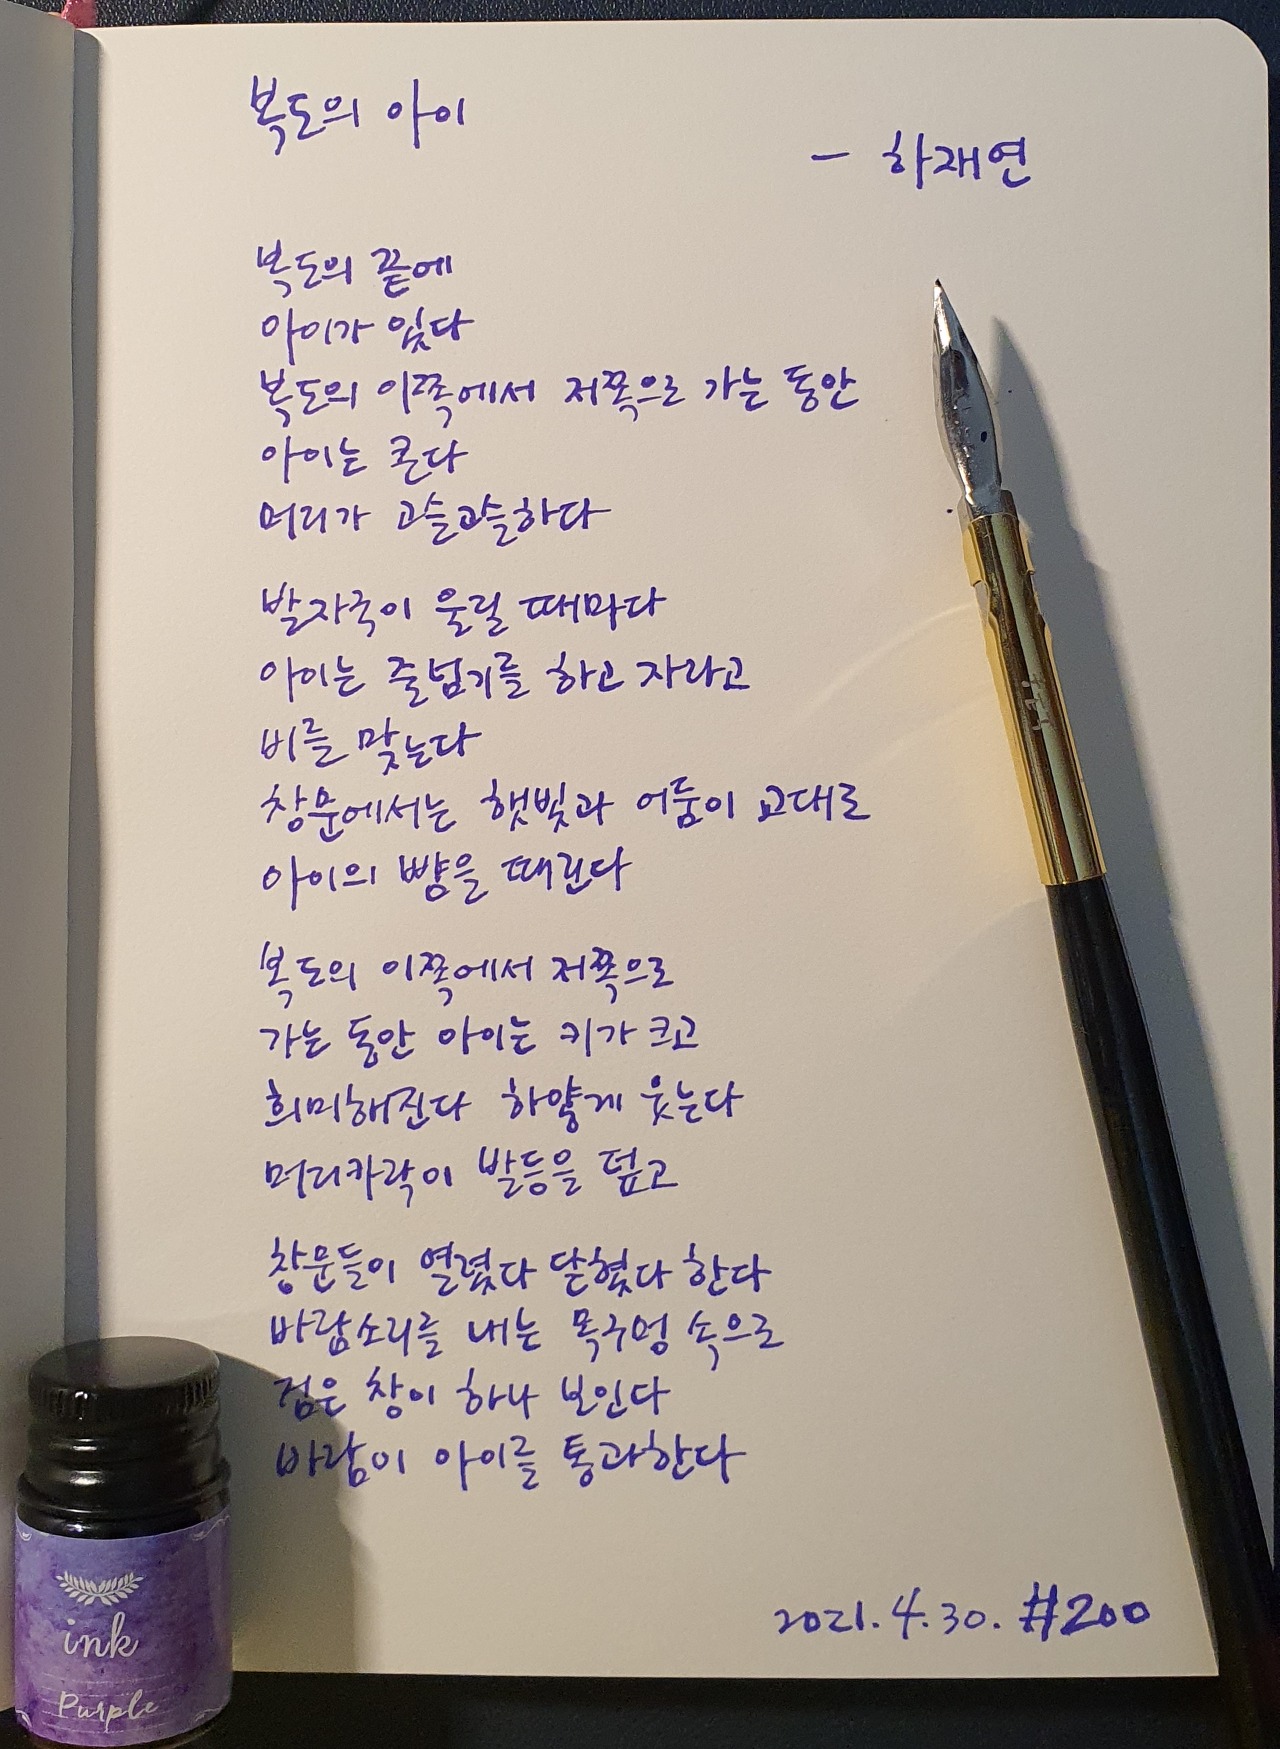 복도의 아이
- 하재연
복도의 끝에
아이가 있다
복도의 이쪽에서 저쪽으로 가는 동안
아이는 큰다
머리가 고슬고슬하다
발자국이 울릴 때마다
아이는 줄넘기를 하고 자라고
비를 맞는다
창문에서는 햇빛과 어둠이 교대로
아이의 뺨을 때린다
복도의 이쪽에서 저쪽으로
가는 동안 아이는 키가 크고
희미해진다 하얗게 웃는다
머리카락이 발등을 덮고
창문들이 열렸다 닫혔다 한다
바람소리를 내는 목구멍 속으로
검은 창이 하나 보인다
바람이 아이를 통과한다
2021.4.30. #200
ink
Purple